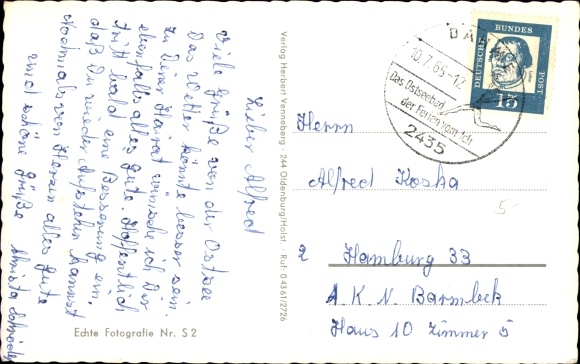 Lieber Alfred
Viele Grüße von der Ostsee
Das Wetter könnte besser sein.
zu Deiner Heirat wünsche ich Dir
ebenfalls alles gute. Hoffentlich
tritt bald eine Besserung ein,
daß Du wieder Aufstehen kannst
Nochmals von Herzen alles gute
und schöne Grüße Christa
Echte Fotografie Nr. S 2
Verlag Herbert Venneberg · 244 Oldenburg/Holst. · Ruf: 0 4361/2726
DEUTSCHE BUNDES POST
15
10.7.65-12
Das Ostseebad
der Ferien vom Ich
2435
Herrn
Alfred Koska
2 Hamburg 33
A.K.N. Barmbek
Haus 10 Zimmer 5